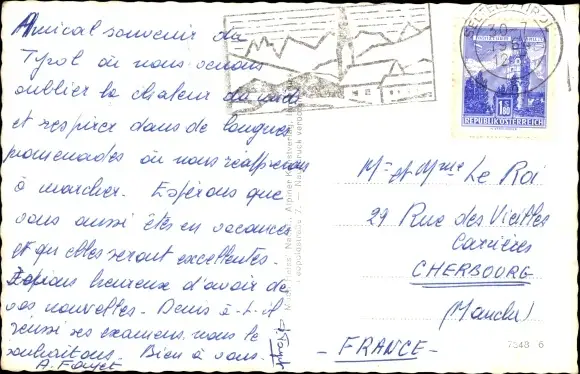 Amical souvenir du
Tyrol où nous venons
oublier la chaleur du midi
et respirer dans de longues
promenades où nous réapprenons
à marcher. Espérons que
vous aussi êtes en vacances
et qu'elles seront excellentes.
Serions heureux d'avoir de
vos nouvelles. Denis a-t-il
réussi ses examens, nous le
souhaitons. Bien à vous.
A. Fayet
30.7.
1964
12
1.80
REPUBLIK ÖSTERREICH
Mr et Mme Le Roi
29 Rue des Vieilles
Carrières
CHERBOURG
(Manche)
- FRANCE -
7548 6